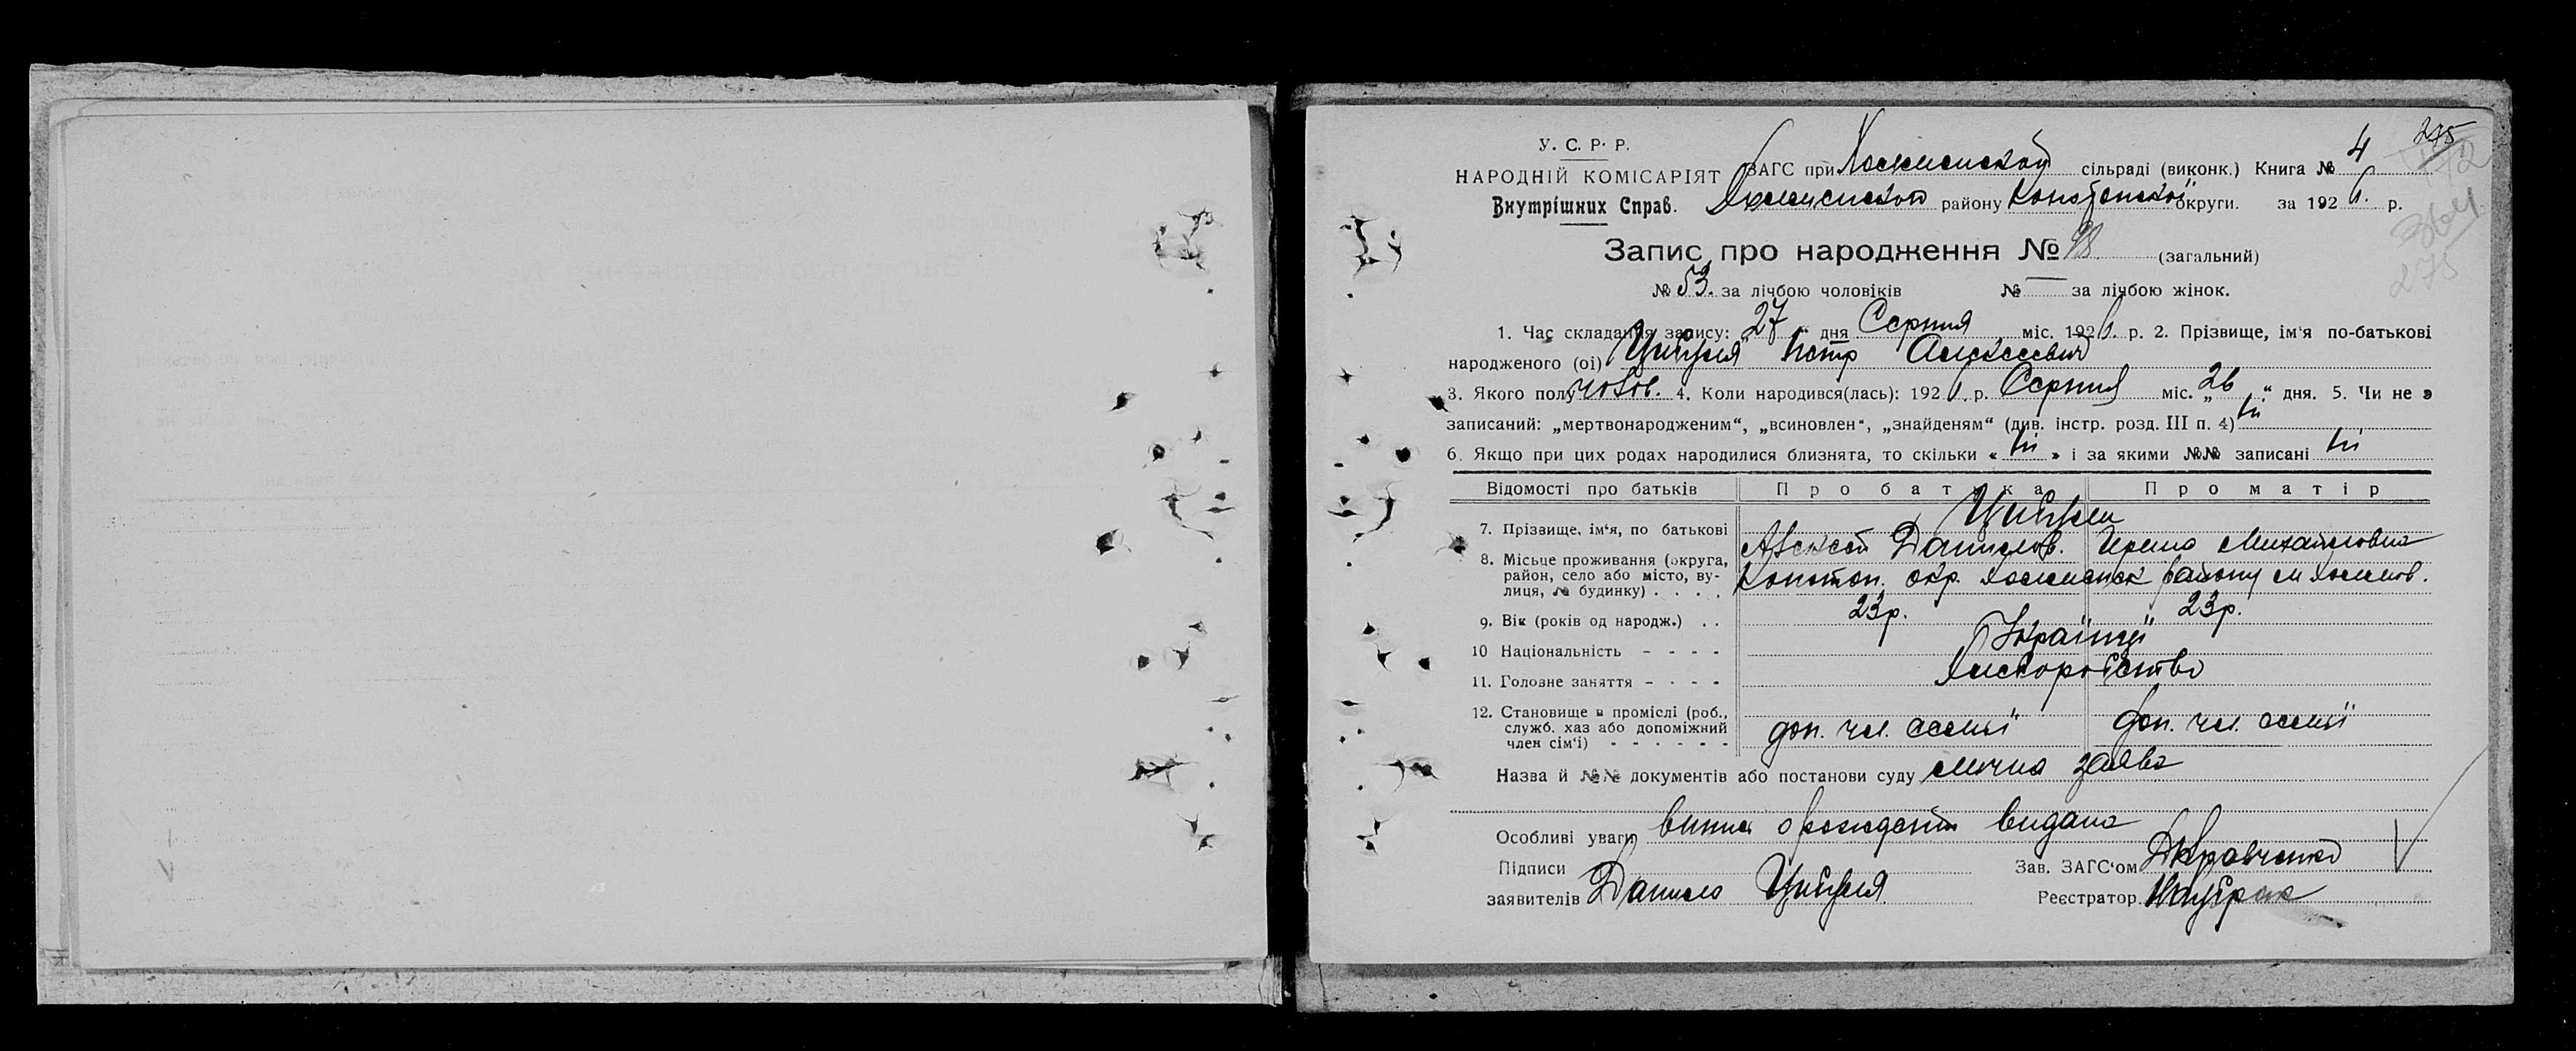 У. С. Р. Р.
275
НАРОДНІЙ КОМІСАРІЯТ ЗАГС при сільраді (виконк.) Книга № 4
Внутрішних Справ. району округи. за 1926. р.
275
Запис про народження № 98 (загальний)
№ 53. за лічбою чоловіків № — за лічбою жінок.
1. Час складання запису: „27“ дня Серпня міс. 1926. р. 2. Прізвище, ім'я по-батькові
народженого (ої) Цибуля Петр Алексеевич
3. Якого полу чолов. 4. Коли народився(лась): 1926. р. Серпня міс. „26“ дня. 5. Чи не э
записаний: „мертвонародженим“, „всиновлен“, „знайденям“ (див. інстр. розд. III п. 4) Ні
6. Якщо при цих родах народилися близнята, то скільки « Ні » і за якими №№ записані Ні
Відомості про батьків Про батька Про матір
7. Прізвище, ім'я, по батькові Цибули
Алексей Данилов. Ирина Михайловна
8. Місьце проживання (округа,
район, село або місто, ву-
лиця, № будинку) . . . . Конотоп. окр. району м
9. Вік (років од народж.) . . 23р. 23р.
10 Національність - - - - Українці
11. Головне заняття - - - - Хлеборобство
12. Становище в промислі (роб.,
служб. хаз або допоміжний
член сім'ї) - - - - - - доп. чл. семьї доп. чл. семьї
Назва й №№ документів або постанови суду заява
Особливі уваги о рождении видана
Підписи Зав. ЗАГС'ом Кравченко
заявителів Данило Цибуля Реєстратор